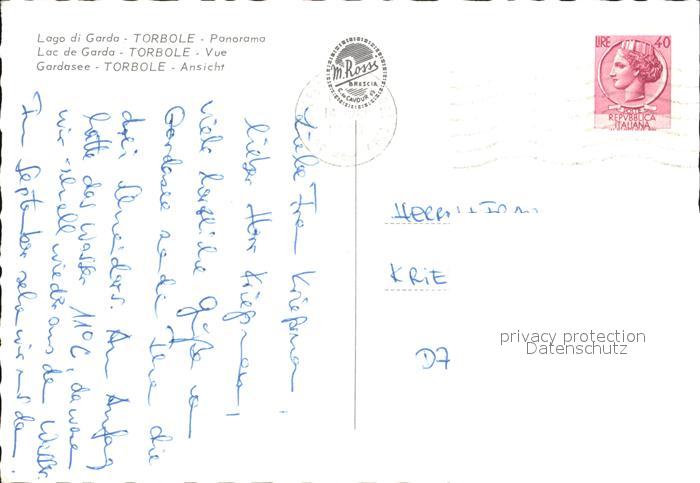 Lago di Garda - TORBOLE - Panorama
Lac de Garda - TORBOLE - Vue
Gardasee - TORBOLE - Ansicht
M. Rossi
BRESCIA
LIRE 40
POSTE
REPVBBLICA
ITALIANA
Liebe Frau
lieber Herr
viele herzliche Grüße vom
Gardasee senden Ihnen die
drei Am Anfang
hatte das Wasser 11°C, da waren
wir schnell wieder aus dem Wasser.
Im September sehen wir uns dann.
KRIE
D7
privacy protection
Datenschutz